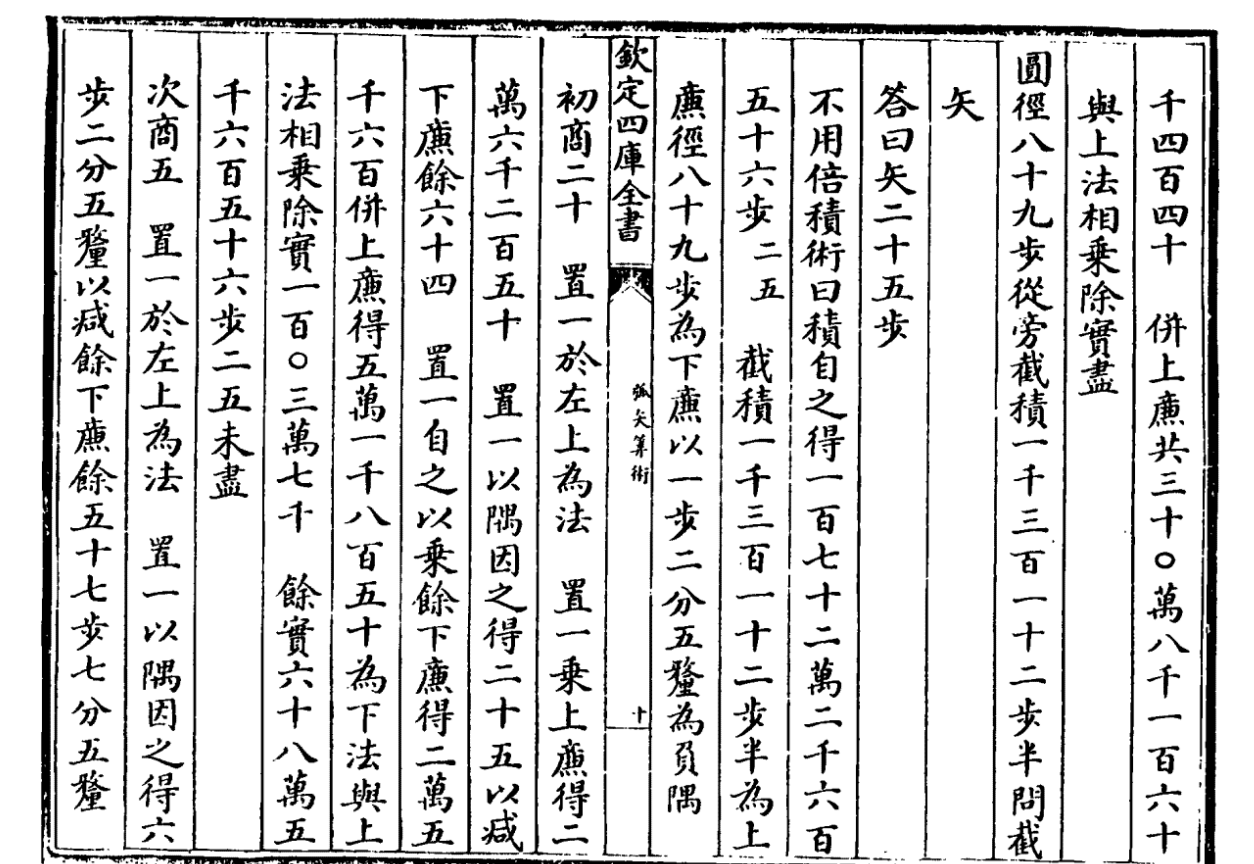 千四百四十　併上廉共三十〇萬八千一百六十
與上法相乗除實盡
圓徑八十九步從旁截積一千三百一十二步半問截
矢
答曰矢二十五步
不用倍積術曰積自之得一百七十二萬二千六百
五十六步二五　截積一千三百一十二步半為上
廉徑八十九步為下廉以一步二分五釐為負隅
欽定四庫全書　弧矢算術　十
初商二十　置一於左上為法　置一乗上廉得二
萬六千二百五十　置一以隅因之得二十五以減
下廉餘六十四　置一自之以乗餘下廉得二萬五
千六百併上廉得五萬一千八百五十為下法與上
法相乗除實一百〇三萬七千　餘實六十八萬五
千六百五十六步二五未盡
次商五　置一於左上為法　置一以隅因之得六
步二分五釐以减餘下廉餘五十七步七分五釐